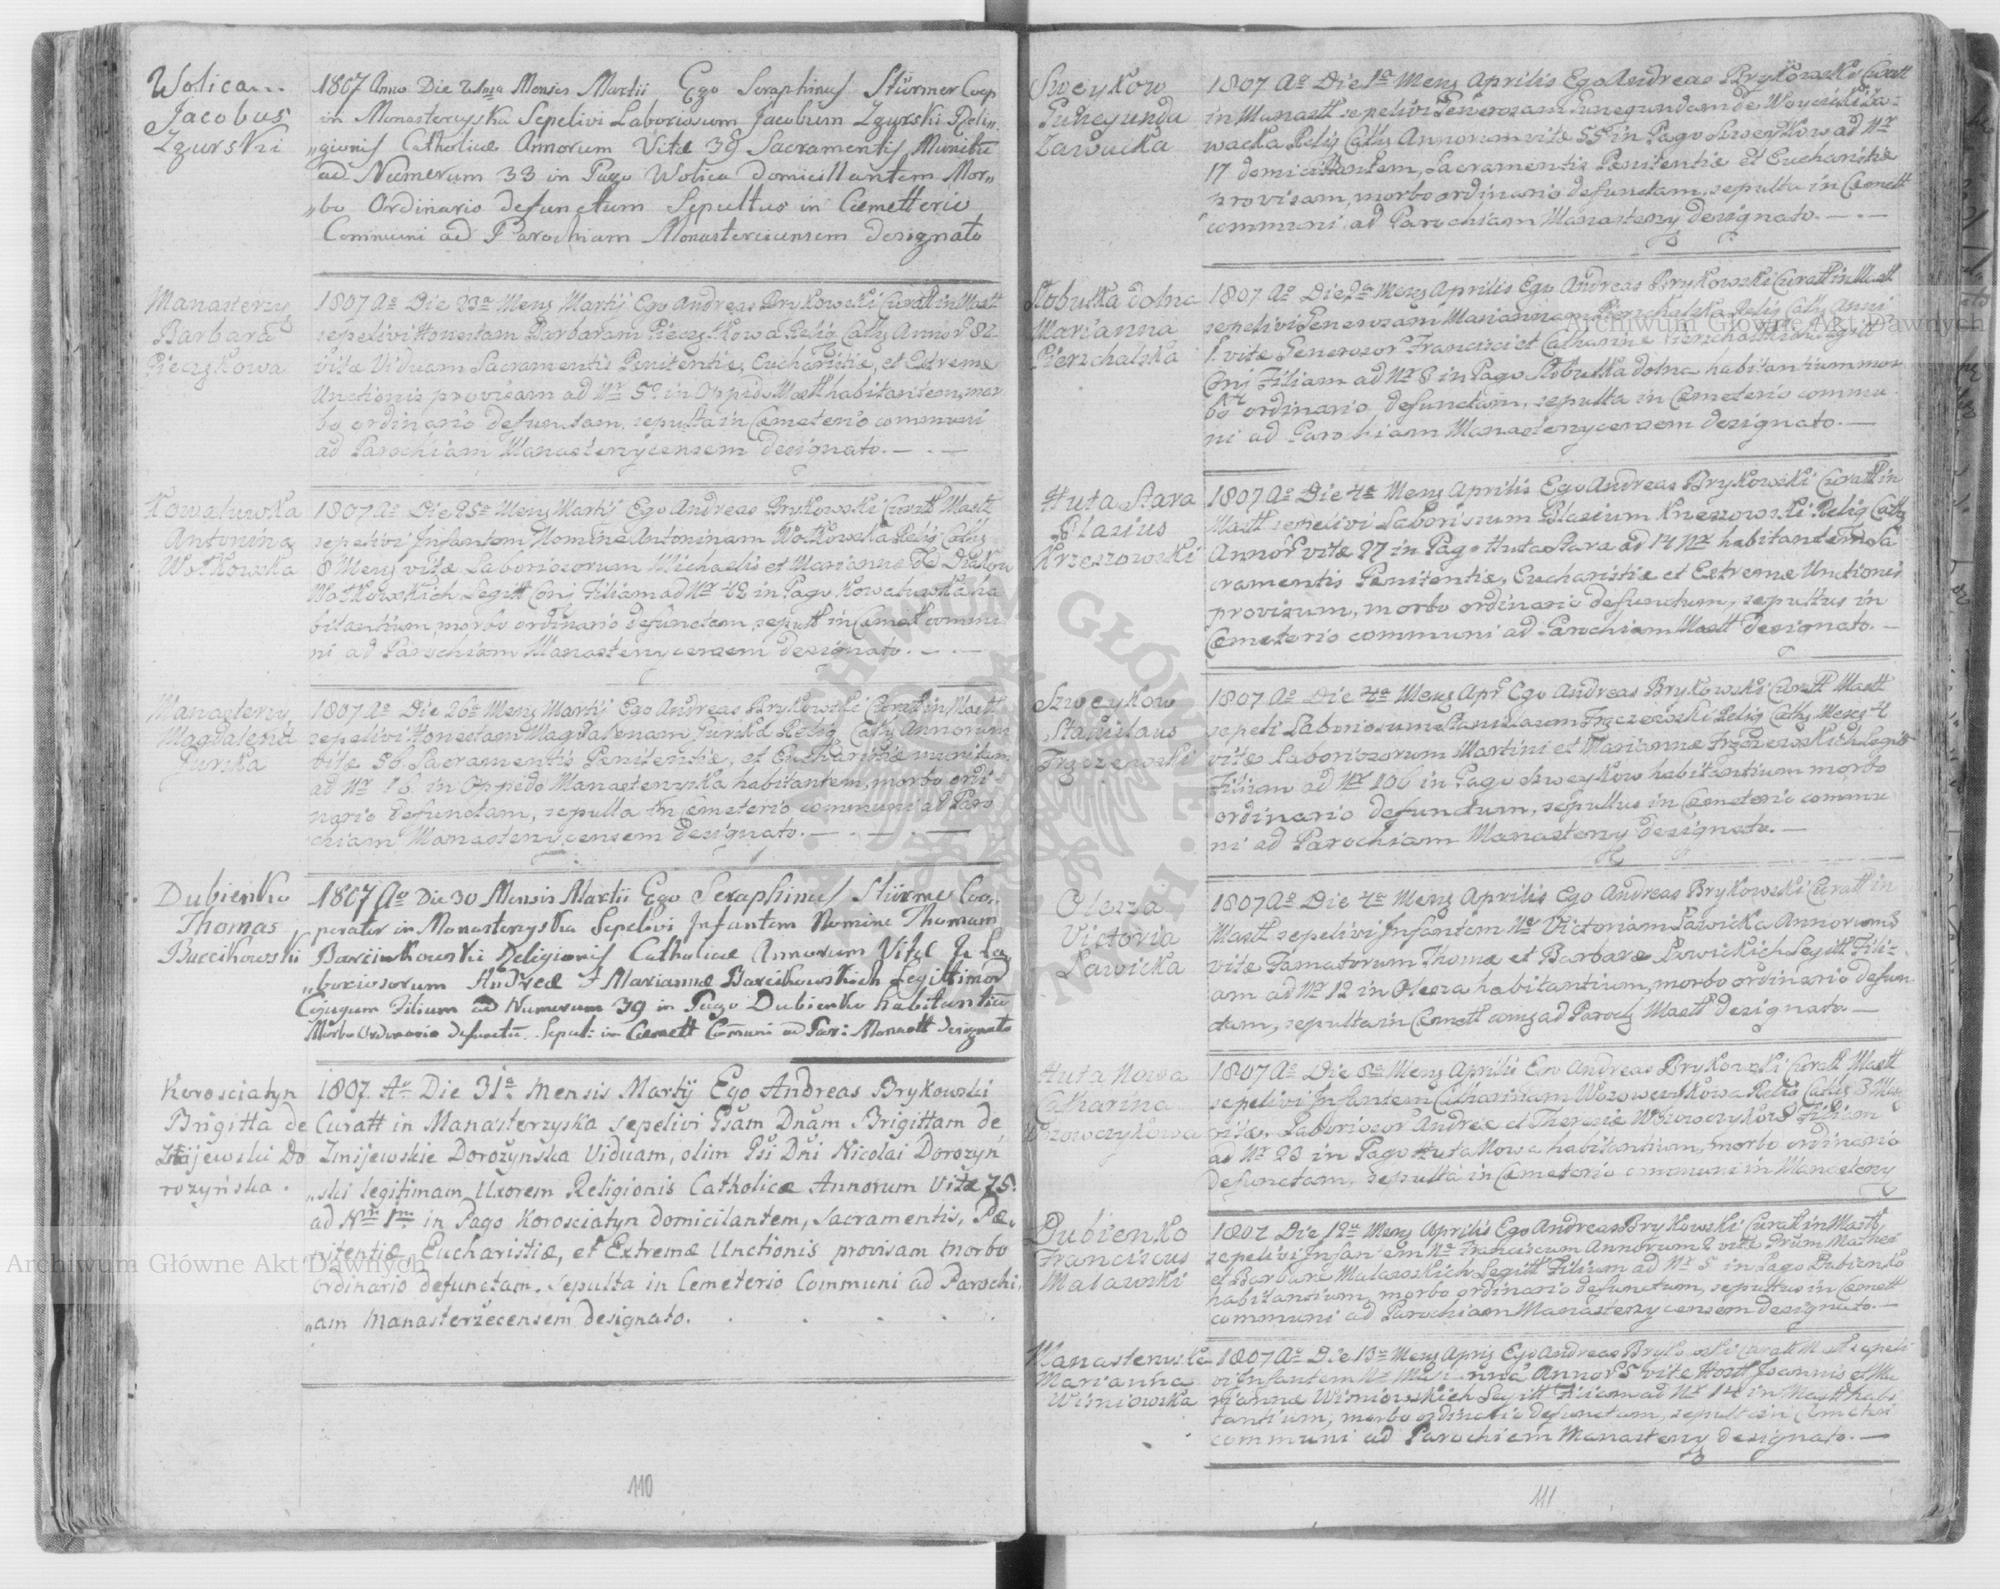 Wolica
Jacobus
Zgurski
1807 Anno Die Mensis Martii Ego Seraphinus Stürmer Coop
in Monastercyska Sepelivi Laboriosum Jacobum Zgurski Reli„
„gionis Catholicæ Annorum Vitæ 39 Sacramentis Munitū
ad Numerum 33 in Pago Wolica domicillantem Mor„
„bo Ordinario defunctum Sepultus in Cæmetterio
Communi ad Parochiam Monasterciensem designato
Manasterzy
Barbara
Pieczykowa
1807 Ao Die 23a Mens Martij Ego Andreas Brykowski Curatt in Mastt
sepelivi Honestam Barbaram Relig Cath Annor 82
vitæ Viduam Sacramentis Penitentiæ, Eucharistiæ, et Extreme
Unctionis provisam ad Nr 50 in Oppido Mastt habitantem, mor
bo ordinario defunctam, sepulta in Cæmeterio communi
ad Parochiam Manasterzycensem designato. — . —
Kowalowka
Antonina
Wolkowska
1807 Ao Die 25a Mens Martij Ego Andreas Brykowski Curatt Mastt
sepelivi Infantem Nomine Antoninam Wolkowska Relig Cath
8 Mens vitæ Laboriosorum Michaelis et Mariannæ de
Legitt Conj Filiam ad Nr 48 in Pago Kowalowka ha
bitantium, morbo ordinario defunctam, sepult in Cæmet commu
ni ad Parochiam Manasterzycensem designato. — . —
Manasterzy
Magdalena
Jurska
1807 Ao Die 26a Mens Martij Ego Andreas Brykowski Curatt in Mastt
sepelivi Honestam Magdalenam Jurska Relig Cath Annorum
vitæ 56. Sacramentis Penitentiæ, et Eucharistiæ munitam
ad Nr 16 in Oppido Manasterzyska habitantem, morbo ordi
nario defunctam, sepulta in Cæmeterio communi ad Paro
chiam Manasterzycensem designato. — . — . —
Dubienko
Thomas
Barcikowski
1807 Ao Die 30 Mensis Martii Ego Seraphinus Stürmer Coo„
perator in Monasterzyska Sepelivi Infantem Nomine Thomam
Barcinkowski Religionis Catholicæ Annorum Vitæ La
„boriosorum Andreæ & Mariannæ Barcikowskich Legittimor
Cojugum Filium ad Numerum 39 in Pago Dubienko habitantiu
Morbo Ordinario defunctū Sepul: in Cæmett Comuni ad Par: Monastt designato
Korosciatyn
Brigitta de
Do
rozyńska.
1807. Ao Die 31a Mensis Martij Ego Andreas Brykowski
Curatt in Manasterzyska sepelivi Gsam Dnam Brigittam de
Zmijewskie Dorozynska Viduam, olim Gsi Dni Nicolai Dorozyń
„ski legitimam Uxorem Religionis Catholicæ Annorum Vitæ 75.
ad Nrū 1mū in Pago Korosciatyn domicilantem, Sacramentis, Pæ„
nitentiæ, Eucharistiæ, et Extremæ Unctionis provisam morbo
ordinario defunctam. Sepulta in Cemeterio Communi ad Parochi„
„am Manasterzecensem designato.
110
Sweykow
Kunegunda
Zawacka
1807 Ao Die 1a Mens Aprilis Ego Andreas Brykowski Curatt
in Manastt sepelivi Generosam Cunegundam de Za-
wacka Relig Cath Annorum vitæ 55 in Pago Sweykow ad Nr
17 domicillantem, Sacramentis Penitentiæ et Eucharistiæ
provisam, morbo ordinario defunctam, sepulta in Cæmett
communi ad Parochiam Manasterzy designato. — . —
Slobudka dolna
Marianna
Pierzchalska
1807 Ao Die 2a Mens Aprilis Ego Andreas Brykowski Curatt in Mastt
sepelivi Generosam Mariannam Pierzchalska Relig Cath Anni
1. vitæ Generosor Francisci et Catharinæ Legitt
Conj Filiam ad Nr 8 in Pago Slobudka dolna habitantium mor
bo ordinario defunctam, sepulta in Cæmeterio commu
ni ad Parochiam Manasterzycensem designato. —
Huta Stara
Blasius
Krzeszowski
1807 Ao Die 4a Mens Aprilis Ego Andreas Brykowski Curatt in
Mastt sepelivi Laboriosum Blasium Relig Cath
Annor vitæ 27 in Pago Huta Stara ad 14 Nr habitantem Sa
cramentis Penitentiæ, Eucharistiæ et Extremæ Unctionis
provisum, morbo ordinario defunctum, sepultus in
Cæmeterio communi ad Parochiam Mastt designato. —
Szweykow
Stanislaus
1807 Ao Die 4a Mens Apr Ego Andreas Brykowski Curatt Mastt
sepeli Laboriosum Stanislaum Relig Cath Mens 4
vitæ Laboriosorum Martini et Mariannæ Legitt
Filium ad Nr 106 in Pago Szweykow habitantium morbo
ordinario defunctum, sepultus in Cæmeterio commu
ni ad Parochiam Manasterzy designato. —
Olesza
Victoria
Lawicka
1807 Ao Die 4a Mens Aprilis Ego Andreas Brykowski Curatt in
Mastt sepelivi Infantem Ne Victoriam Lawicka Annorum 3
vitæ Famatorum Thomæ et Barbaræ Lawickich Legitt Fili-
am ad Nr 12 in Olesza habitantium, morbo ordinario defun
ctam, sepulta in Cæmett comu ad Paroch Mastt designato —
Huta Nowa
Catharina
Wozowczykowa
1807 Ao Die 8a Mens Aprilis Ego Andreas Brykowski Curatt Mastt
sepelivi Infantem Catharinam Relig Cath 3 Mens
vitæ, Laboriosor Andreæ et Theresiæ Filiam
ad Nr 23 in Pago Huta Nowa habitantium, morbo ordinario
defunctam, sepulta in Cæmeterio communi in Manasterzy
Dubienko
Franciscus
Malawski
1807 Die 12a Mens Aprilis Ego Andreas Brykowski Curatt in Mastt
sepelivi Infantem Ne Franciscum Annorum 2 vitæ
et Barbaræ Malawskich Legitt Filium ad Nr 5 in Pago Dubienko
habitantium, morbo ordinario defunctum, sepultus in Cæmett
communi ad Parochiam Manasterzycensem designato. —
Manasterzyska
Marianna
Wisniowska
1807 Ao Die 13a Mens Apris Ego Andreas Brykowski Curatt Mastt sepeli
vi Infantem Annor 5 vitæ Hostt Joannis et Ma
riannæ Wisniowskich Legitt Filiam ad Nr 14 in Mastt habi
tantium, morbo ordinario defunctam, sepulta in Cæmeteri
communi ad Parochiam Manasterzy designato. —
111
Archiwum Główne Akt Dawnych
Archiwum Główne Akt Dawnych
ARCHIWUM GŁÓWNE